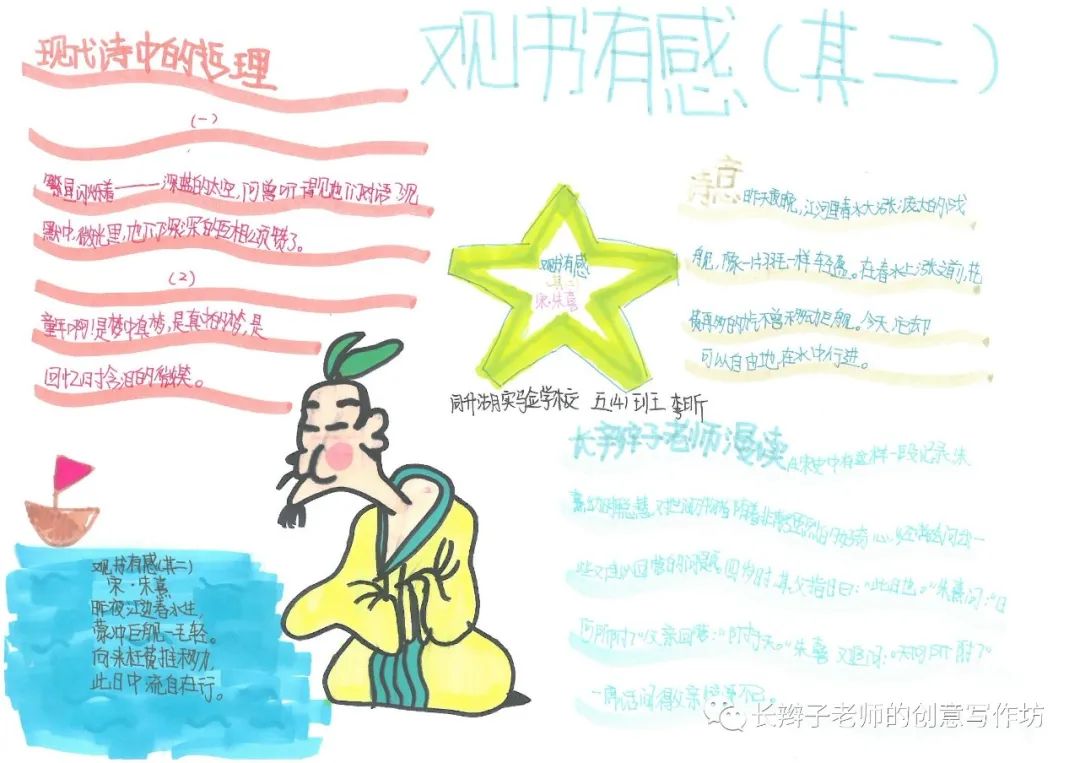 观书有感(其二)
现代诗中的哲理
(一)
繁星闪烁着——深蓝的太空,何曾听得见他们对语?沉
默中,微光里,他们深深的互相颂赞了。
(2)
童年啊!是梦中真梦,是真中的梦,是
回忆时含泪的微笑。
观书有感
其二
宋·朱熹
诗意 昨天夜晚,江河里春水大涨,庞大的战
舰,像一片羽毛一样轻盈。在春水上涨之前,花
费再多的
不曾移动巨舰。今天,它却
可以自由地在水中行进。
同升湖实验学校 五(4)班 李昕
长辫子老师漫读 从宋史中有这样一段记录:朱
熹幼时聪慧,对世间
四岁时,其父指日曰:“此日也。”朱熹问:“日
何所附?”父亲回答:“附于天。”朱熹又追问:“天何所附?”
一席话问得父亲惊讶不已。
观书有感(其二)
宋·朱熹
昨夜江边春水生,
蒙冲巨舰一毛轻。
向来枉费推移力,
此日中流自在行。
长辫子老师的创意写作坊